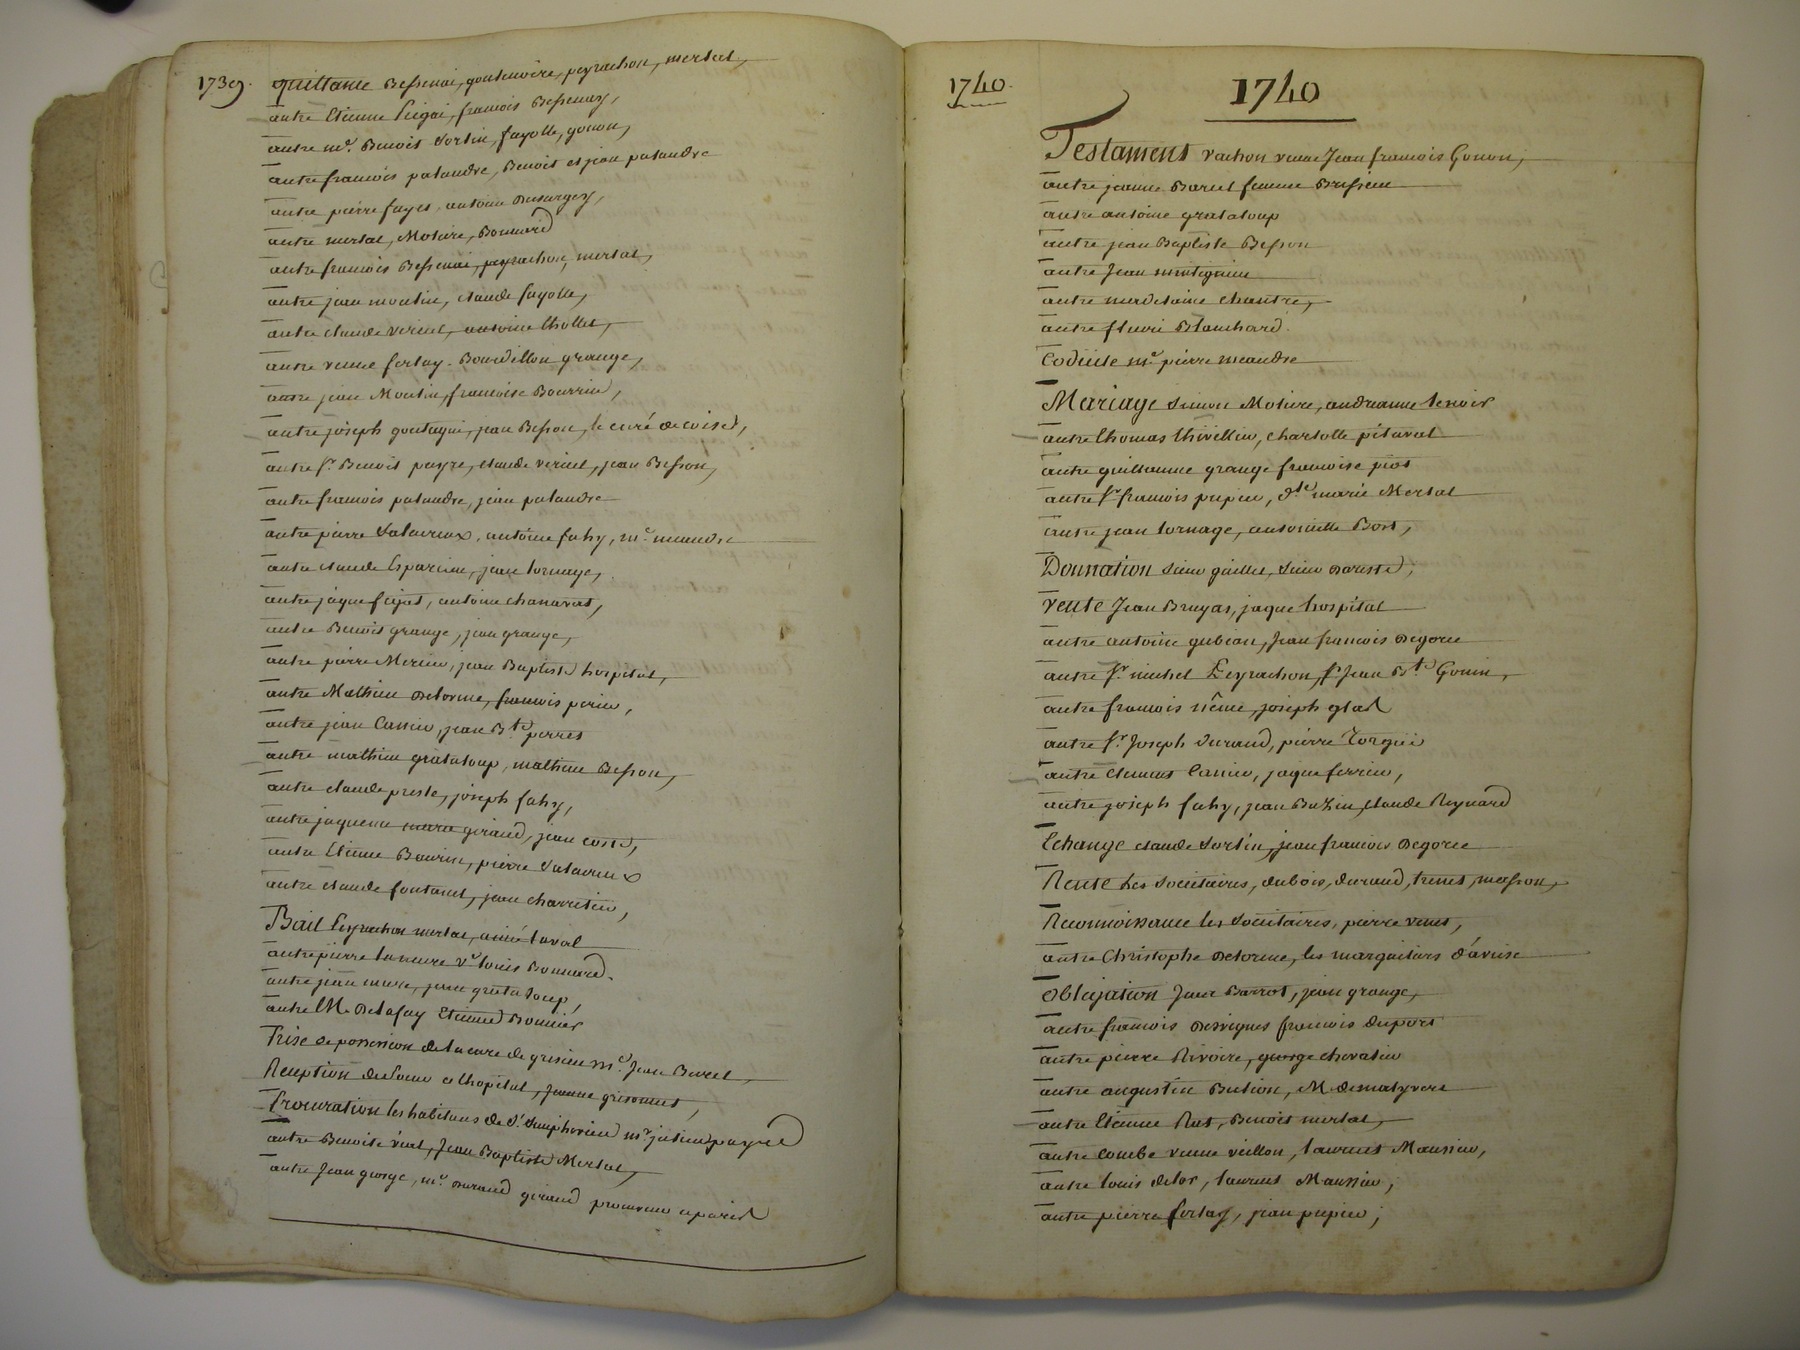 1739.
quittance Bessenai, goutenoire, peyrachon, mertal,
autre Etienne Pugai, francois Bessenay,
autre me. Benoit Vortin, fayolle, gonon,
autre francois palandre, Benoit et jean palandre
autre pierre fayet, antoine Desurgey,
autre mertal, Moliere, Bonnard
autre francois Bessenai, peyrachon, mertal,
autre jean moulin, claude fayolle,
autre claude vericel, antoine thollet,
autre veuve ferlay. Bourdillon grange,
autre jean Moulin, francoise Bourrin,
autre joseph goutagni, jean Besson, le curé de coise,
autre sr. Benoit payre, claude vericel, jean Besson,
autre francois palandre, jean palandre
autre pierre antoine fahy, me. meandre
autre claude Esparcieu, jean tornage,
autre jaque fayat, antoine chanavat,
autre Benoit grange, jean grange,
autre pierre Merieu, jean Baptiste hospital,
autre Mathieu Delorme, francois perieu,
autre jean Cassieu, jean Bte. perret
autre mathieu grataloup, mathieu Besson,
autre claude preste, joseph fahy,
autre jaqueme giraud, jean coste,
autre Etienne Bourin, pierre
autre claude fontanel, jean charretier,
Bail Peyrachon mertal, aimé laval
autre pierre ve. louis Bonnard.
autre jean mure, jean grataloup,
autre M. Delafay Etienne Bonnier
Prise de possession de la cure de grisieu me. Jean Burel,
Reception du Soeur a l'hopital, jeanne grisonnet,
Procuration les habitans de St. Simphorien mr. julien payre
autre Benoite vial, Jean Baptiste Mertal,
autre Jean george, me. Durand giraud procureur a paris
1740.
1740
Testament vachon veuve Jean francois Gonon,
autre jeanne Barcel femme Brissieu
autre antoine grataloup
autre jean Baptiste Besson
autre Jean
autre madelaine chantre,
autre fleuri Blanchard.
Codicile me. pierre meandre
Mariage Simon Moliere, andreanne lenoir
autre thomas thivellin, charlotte pitaval
autre guillaume grange francoise piot
autre sr. francois pupier, dlle marie Mertal
autre jean tornage, antoinette Bort,
Donnation Sieur guillet, Sieur
Vente Jean Bruyas, jaque hospital
autre antoine gubian, Jean francois Degorce
autre sr. michel Peyrachon, sr. Jean Bte Gonin,
autre francois nême, joseph glas
autre sr. Joseph Durand, pierre
autre clement Cassieu, jaque ferrieu,
autre joseph fahy, jean Buzin, claude Reynard
Echange claude Vortin, jean francois Degorce
Rente les Societaires, dubois, durand, masson,
Reconnoissance les Societaires, pierre
autre Christophe Delorme, les marguiliers d'aveise
Obligation Jean Barrot, jean grange,
autre francois Desvignes francois duport
autre pierre Rivoire, george chevalier
autre augustin Bution, M.
autre Etienne Rut, Benoit mertal,
autre Combe veuve veillon, laurent Maussieu,
autre louis delor, laurent Maussieu,
autre pierre ferlay, jean pupier,